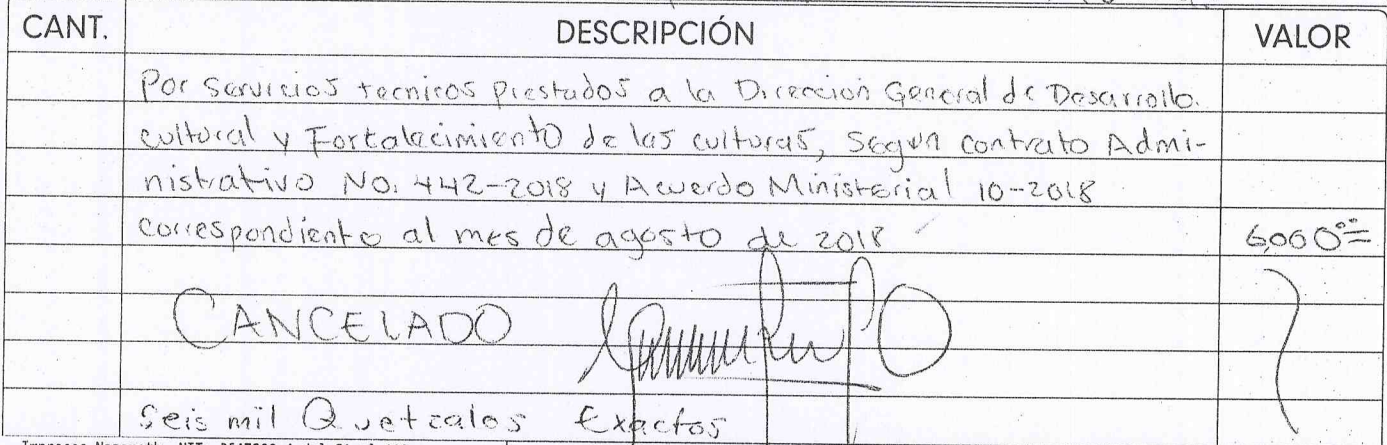 CANT. DESCRIPCIÓN VALOR
Por servicios tecnicos prestados a la Direccion General de Desarrollo.
cultural y Fortalecimiento de las culturas, Segun contrato Admi-
nistrativo No. 442-2018 y Acuerdo Ministerial 10-2018
correspondiente al mes de agosto de 2018 6,000.00
CANCELADO
Seis mil Quetzales Exactos